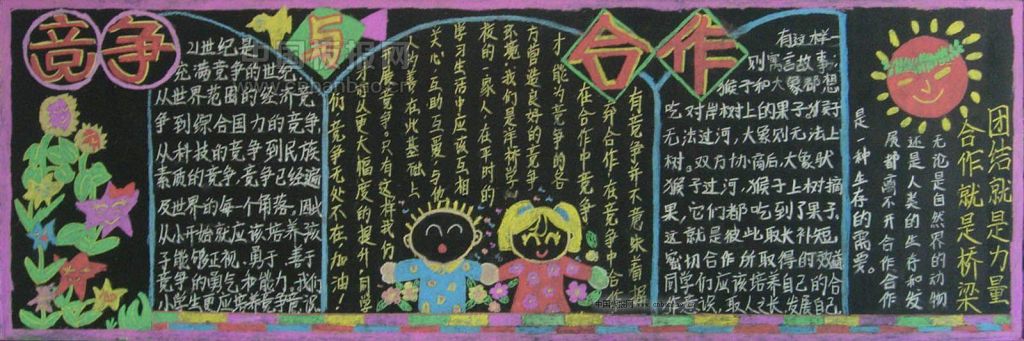 竞争与合作
21世纪是
充满竞争的世纪,
从世界范围的经济竞
争到综合国力的竞争,
从科技的竞争到民族
素质的竞争,竞争已经遍
及世界的每个角落,因此
从小开始就应该培养孩
子能够正视、勇于、善于
竞争的勇气和能力,我们
小学生更应培养竞争意识
有竞争并不意味着
在合作中竞争
才能为竞争中的各
方营造良好的竞争
环境,我们是洋桥学
校的一家人,在平时的
学习生活中应该互相
关心、互助互爱、与他
人为善,在此基础上
才
们,竞争无处不在,加油!
有这样一
则寓言故事,
猴子和大象都想
吃对岸树上的果子,猴子
无法过河,大象则无法上
树。双方协商后,大象驮
猴子过河,猴子上树摘
果,它们都吃到了果子,
这就是彼此取长补短,
密切合作所取得的效益
同学们应该培养自己的合
作意识,取人之长,发展自己
无论是自然界的动物
还是人类的生存和发
展都离不开合作,合作
是一种生存的需要。
团结就是力量
合作就是桥梁
中国板报网